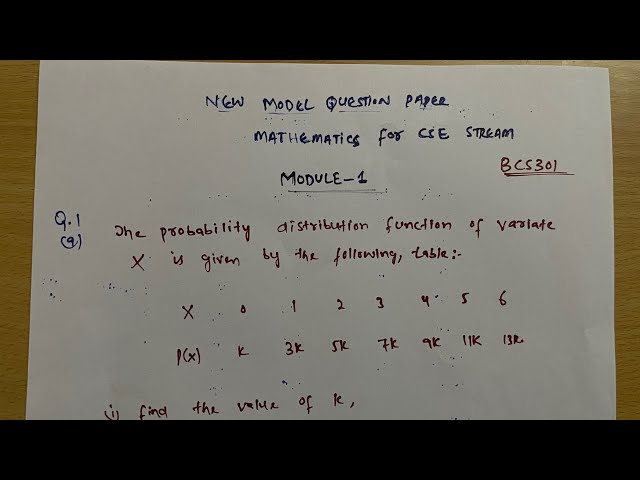 NEW MODEL QUESTION PAPER
MATHEMATICS for CSE STREAM
BCS301
MODULE-1
Q.1
(a) The probability distribution function of variate
X is given by the following, table:-
X 0 1 2 3 4 5 6
P(x) K 3K 5K 7K 9K 11K 13K
(i) find the value of k,